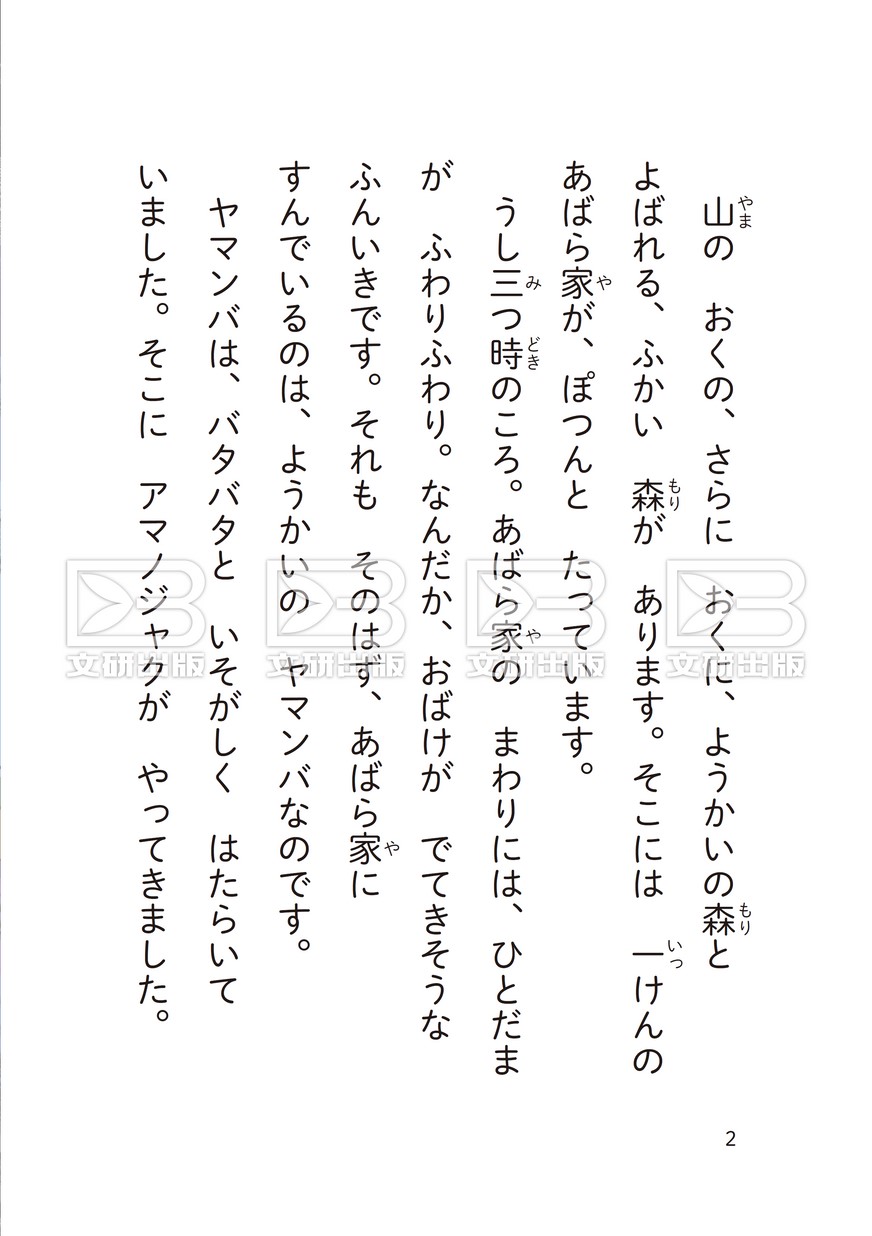 山の　おくの、さらに　おくに、ようかいの森と
よばれる、ふかい　森が　あります。そこには　一けんの
あばら家が、ぽつんと　たっています。
　うし三つ時のころ。あばら家の　まわりには、ひとだま
が　ふわりふわり。なんだか、おばけが　でてきそうな
ふんいきです。それも　そのはず、あばら家に
すんでいるのは、ようかいの　ヤマンバなのです。
　ヤマンバは、バタバタと　いそがしく　はたらいて
いました。そこに　アマノジャクが　やってきました。
やま
もり
もり
いっ
や
み
どき
や
や
文研出版
文研出版
文研出版
文研出版
2